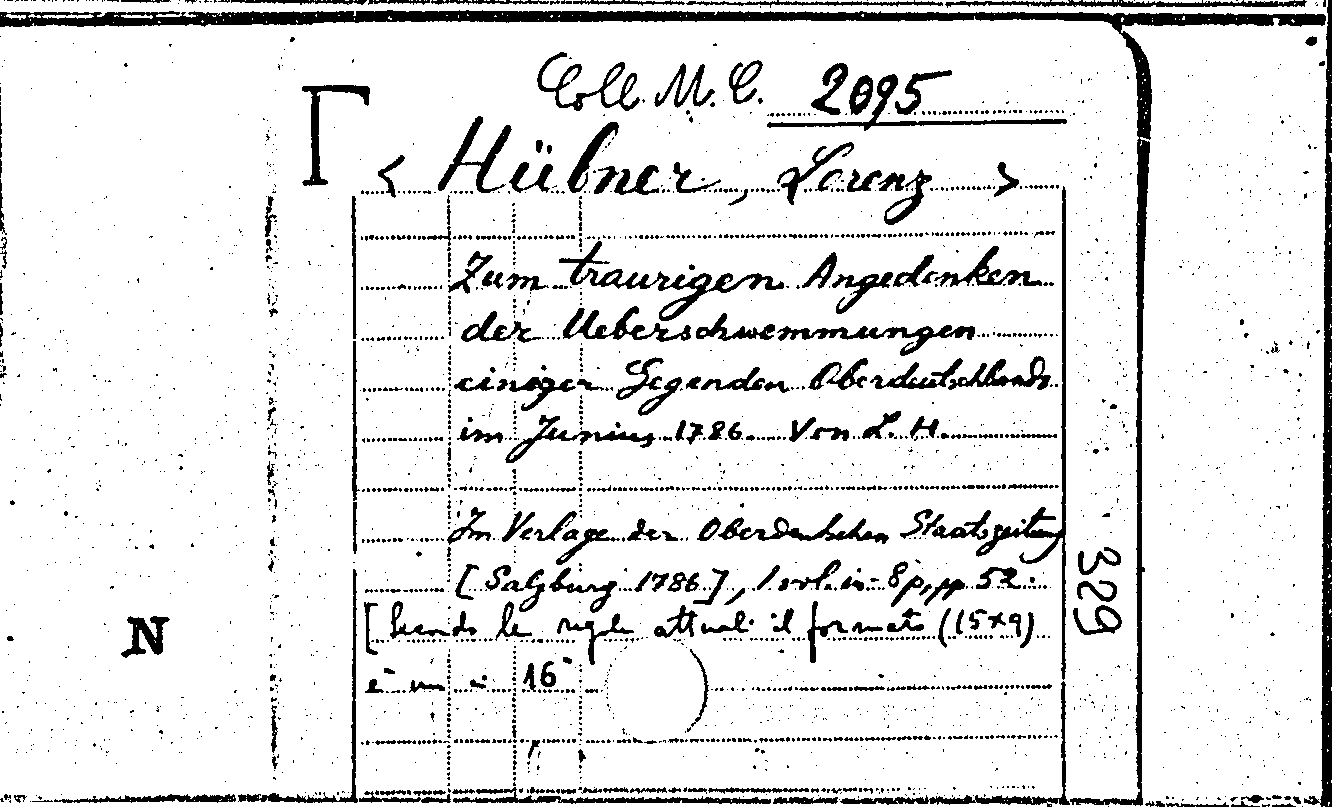 Coll. M. C. 2095
< Hübner, Lorenz >
Zum traurigen Angedenken
der Ueberschwemmungen
einiger Gegenden Oberdeutschlands
im Junius 1786. Von L. H.
Im Verlage der Oberdeutschen Staatszeitung
[Salzburg 1786], 1 vol. in-8p, pp 52.
[Secondo le regole attuali il formato (15x9)
è un in 16°
329
N